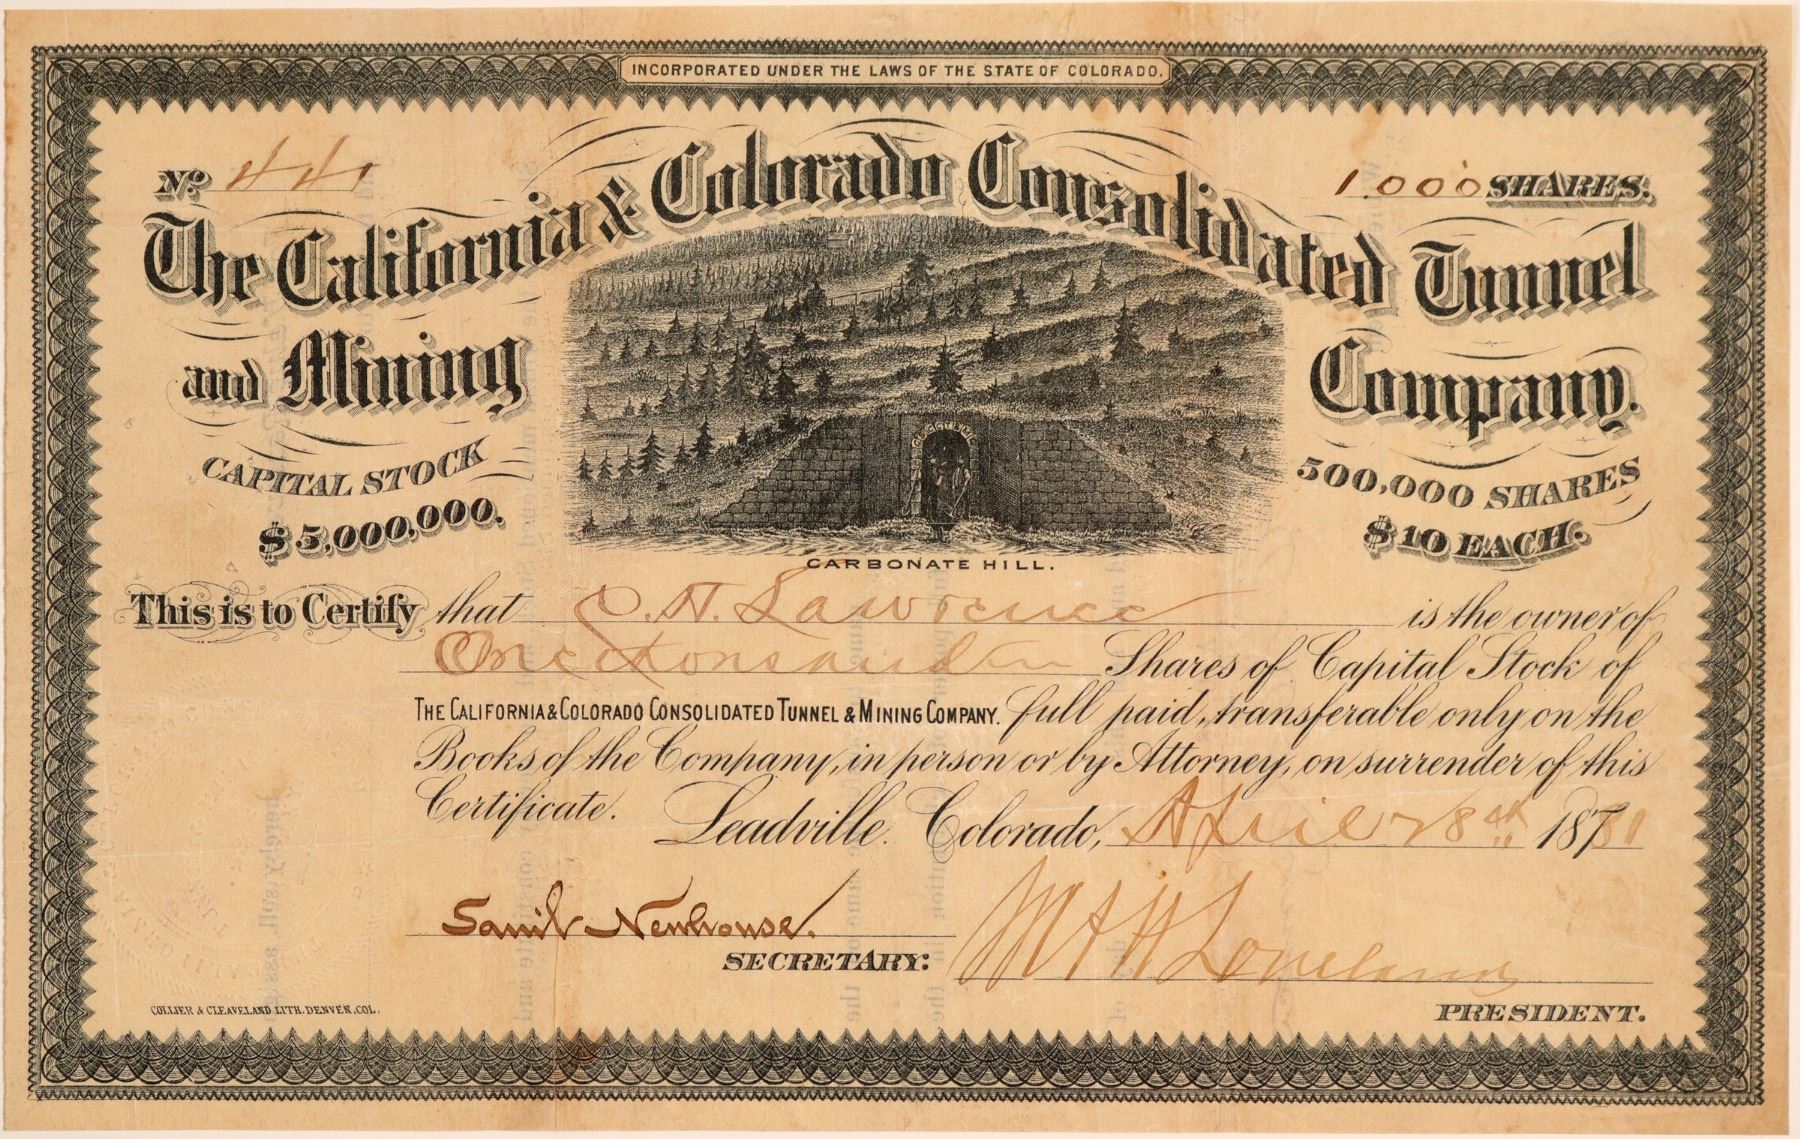 INCORPORATED UNDER THE LAWS OF THE STATE OF COLORADO.
No. 441
1.000 SHARES.
The California & Colorado Consolidated Tunnel
and Mining Company.
CAPITAL STOCK
$5,000,000.
500,000 SHARES
$10 EACH.
CARBONATE HILL.
This is to Certify that C. H. Lawrence is the owner of
One thousand Shares of Capital Stock of
THE CALIFORNIA & COLORADO CONSOLIDATED TUNNEL & MINING COMPANY. full paid, transferable only on the
Books of the Company, in person or by Attorney, on surrender of this
Certificate. Leadville. Colorado, April 28th 1881
Saml Newhouse.
SECRETARY:
W A H Loveland
PRESIDENT.
COLLIER & CLEAVELAND LITH. DENVER, COL.